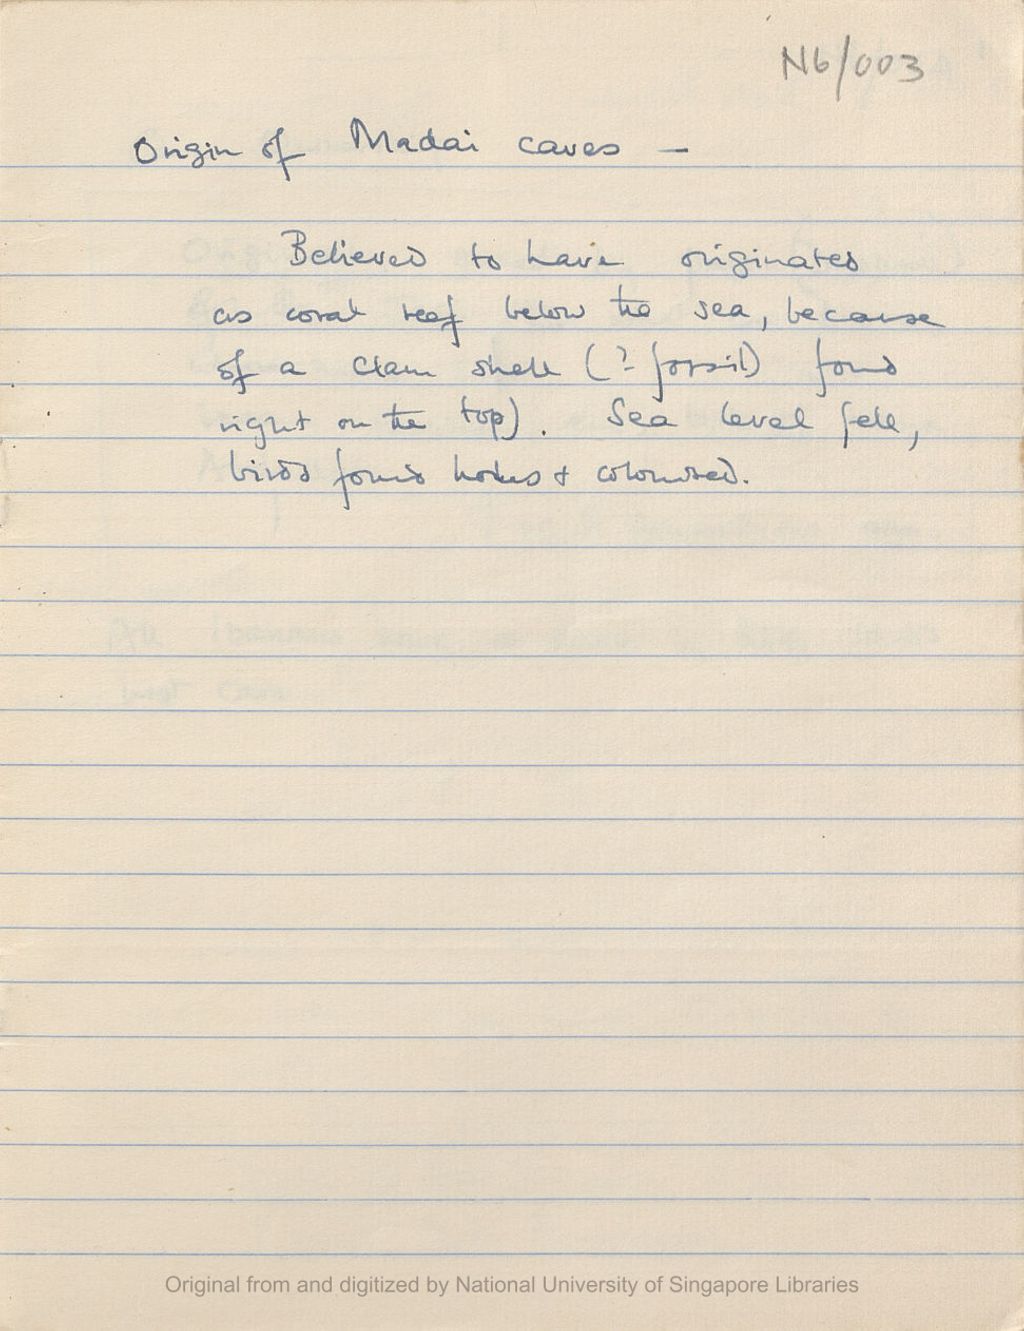 N6/003
Origin of Madai caves —
Believed to have originated
as coral reef below the sea, because
of a clam shell (? fossil) found
right on the top). Sea level fell,
birds found holes & colonised.
Original from and digitized by National University of Singapore Libraries